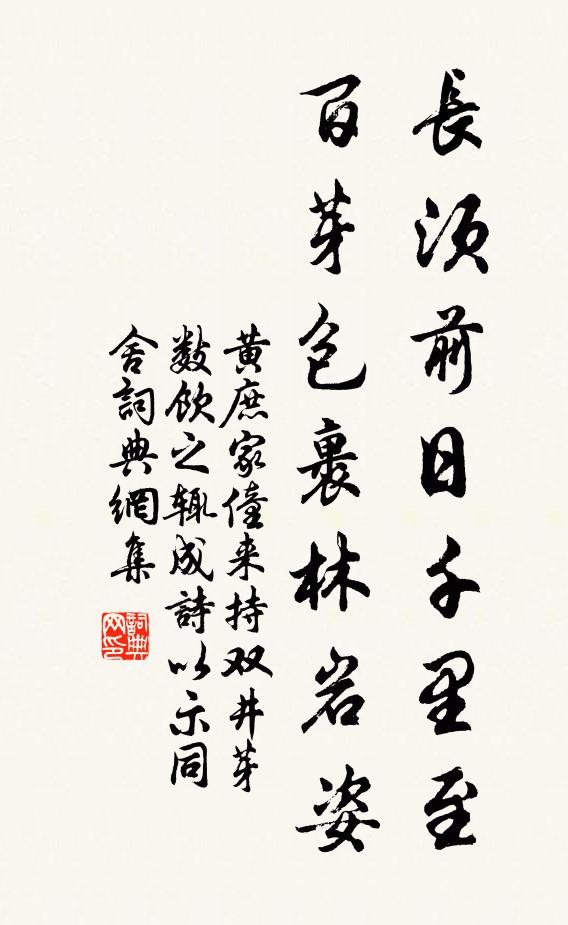 長須前日千里至
百芽包裹林岩姿
黄庶家僮来持双井芽
数飲之辄成詩以示同
舍詞典網集
詞典网印